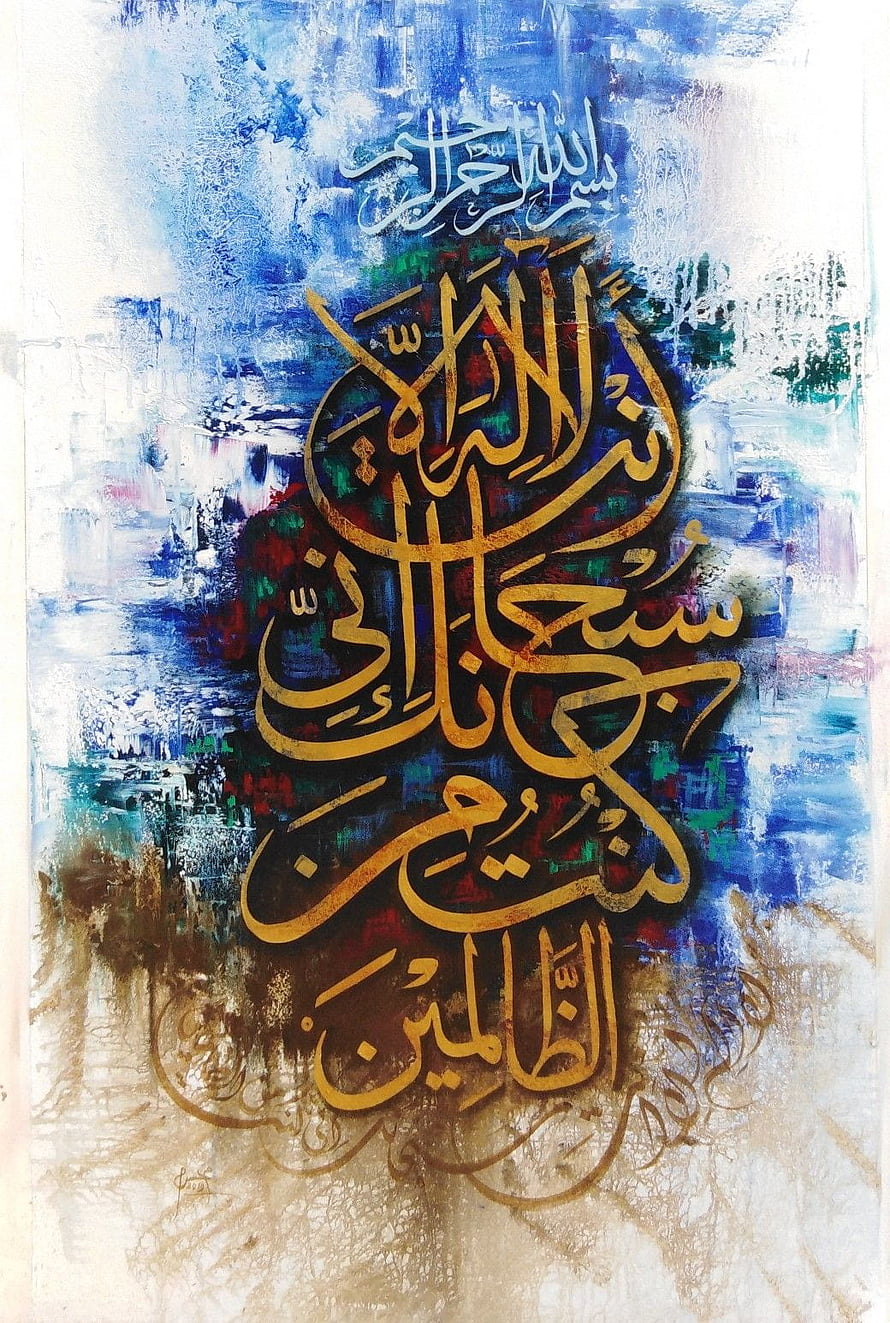 بسم الله الرحمن الرحيم
لَآ إِلٰهَ إِلَّا أَنْتَ
سُبْحَانَكَ إِنِّي
كُنْتُ مِنَ
الظَّالِمِيْنَ